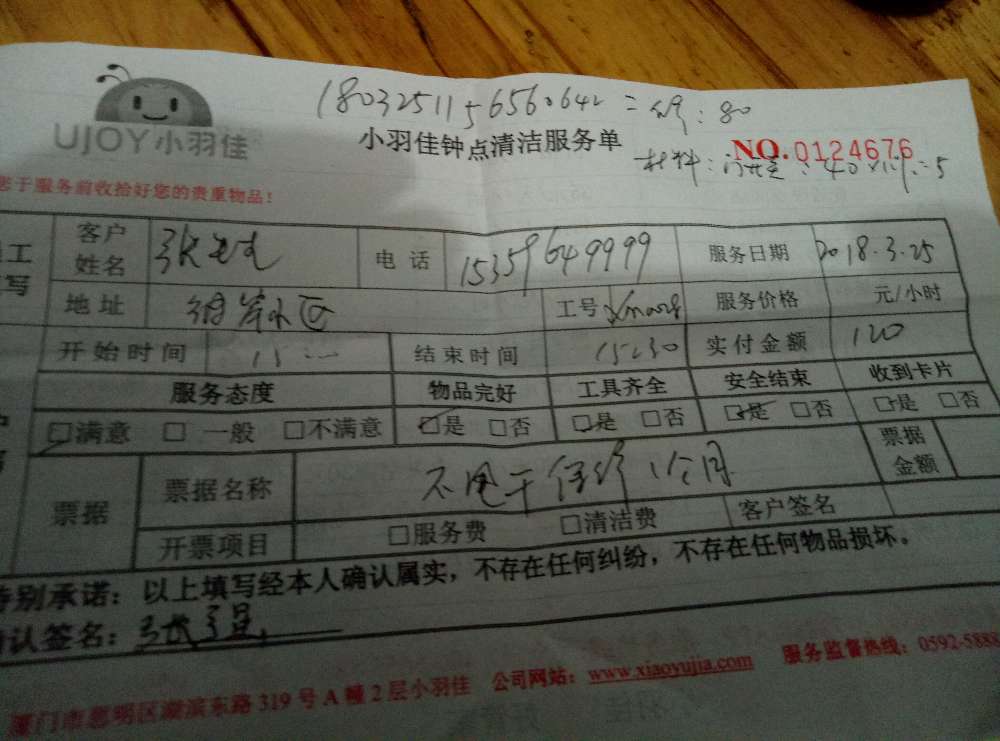 1803251156560642 = 80
UJOY小羽佳
小羽佳钟点清洁服务单
NO.0124676
材料: : 40
于服务前收拾好您的贵重物品!
工 客户姓名 张 电话 15359649999 服务日期 2018.3.25
写 地址 工号 服务价格 元/小时
开始时间 15 结束时间 15:30 实付金额 120
服务态度 物品完好 工具齐全 安全结束 收到卡片
□满意 □一般 □不满意 □是 □否 □是 □否 □是 □否 □是 □否
票据 票据名称 不甩干保修1个月 票据金额
开票项目 □服务费 □清洁费 客户签名
特别承诺:以上填写经本人确认属实,不存在任何纠纷,不存在任何物品损坏。
确认签名:张
厦门市思明区湖滨东路319号A幢2层小羽佳 公司网站:www.xiaoyujia.com 服务监督热线:0592-5888